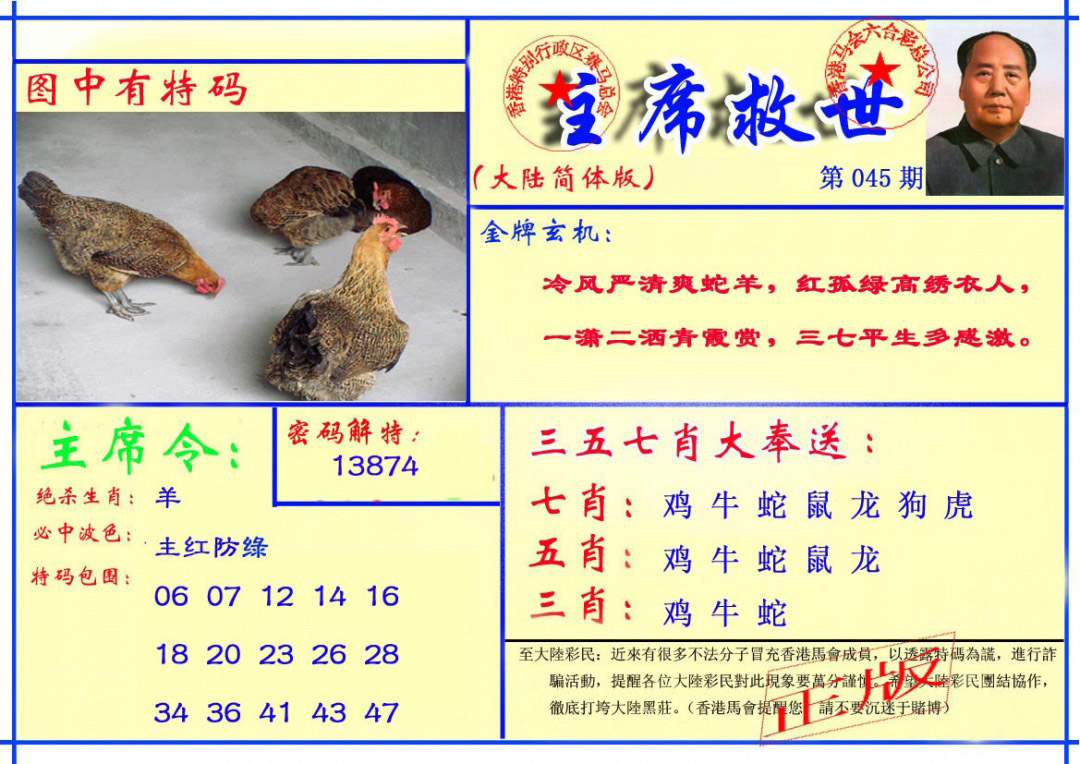 图中有特码
香港特别行政区赛马总会
香港马会六合彩总公司
主席救世
（大陆简体版）
第 045 期
金牌玄机：
冷风严清爽蛇羊，红孤绿高绣衣人，
一潇二洒青霞赏，三七平生多感激。
主席令：
绝杀生肖：羊
必中波色：主红防綠
特码包围：
06 07 12 14 16
18 20 23 26 28
34 36 41 43 47
密码解特：
13874
三五七肖大奉送：
七肖：鸡 牛 蛇 鼠 龙 狗 虎
五肖：鸡 牛 蛇 鼠 龙
三肖：鸡 牛 蛇
至大陸彩民：近來有很多不法分子冒充香港馬會成員，以透露特碼為謊，進行詐
騙活動，提醒各位大陸彩民對此現象要萬分謹慎。希望大陸彩民團結協作，
徹底打垮大陸黑莊。（香港馬會提醒您，請不要沉迷于賭博）
正版